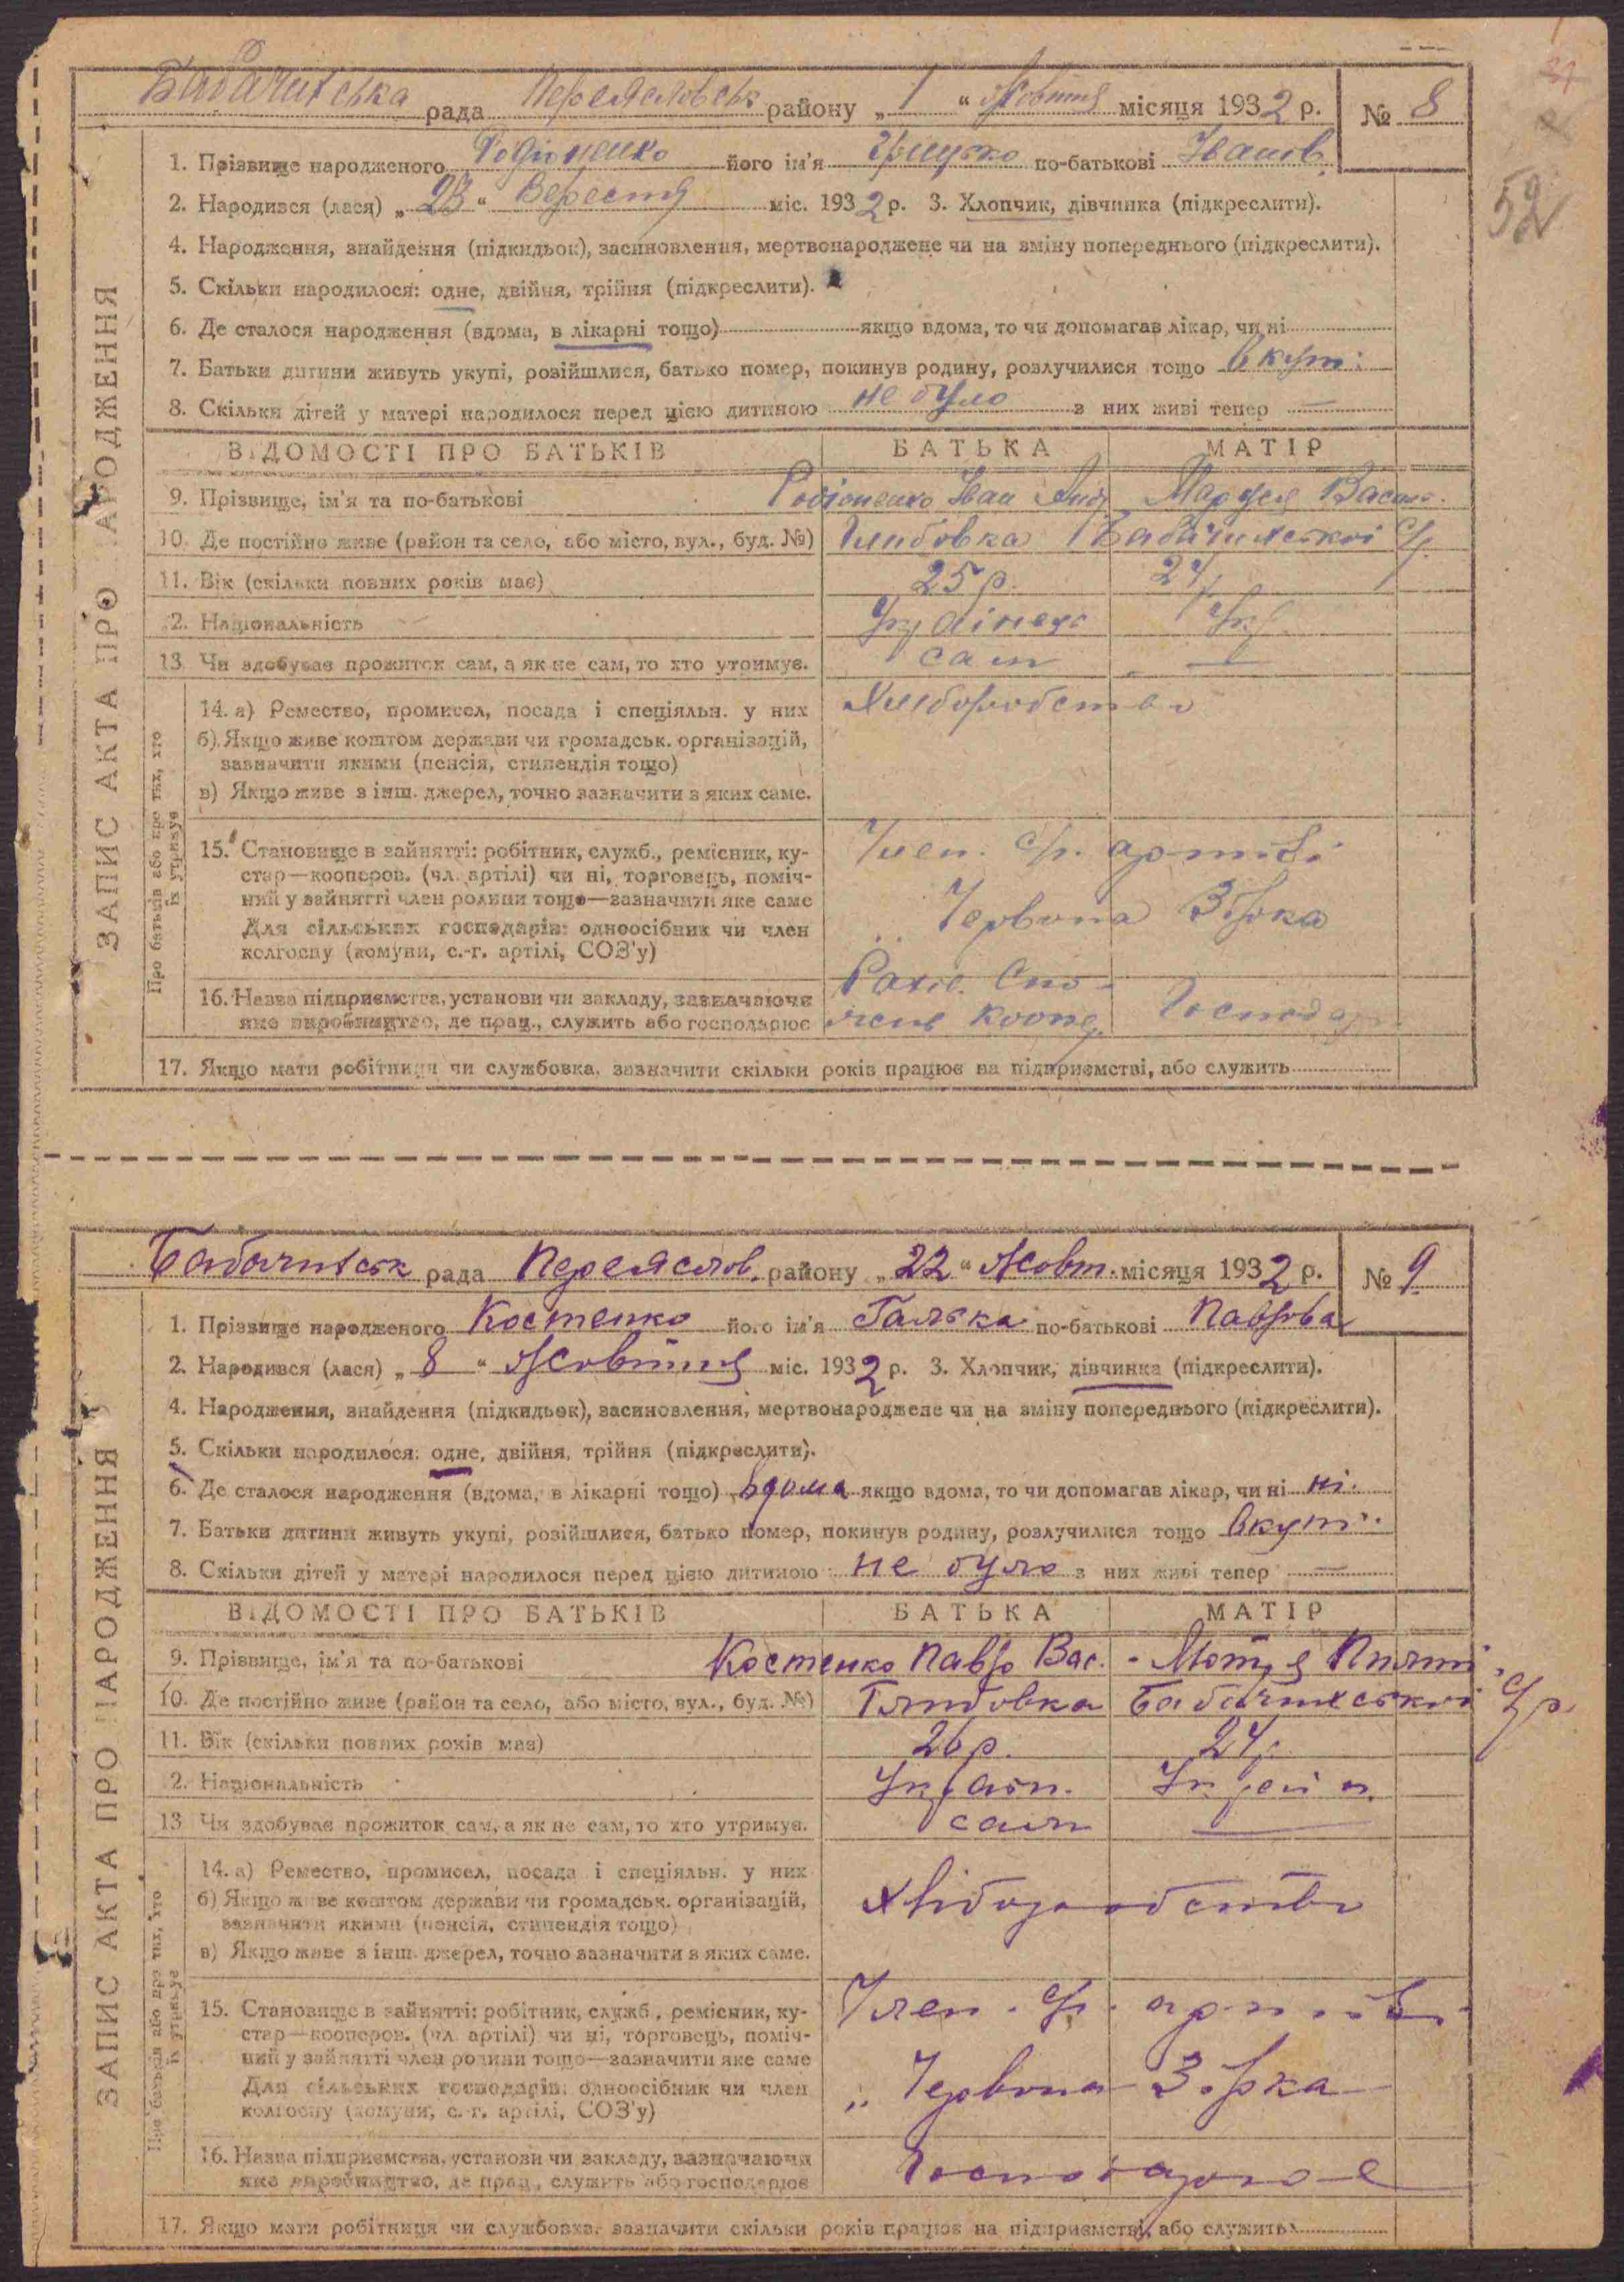 52
Бабачихська рада Переяславськ району „ 1 “ Жовтня місяця 1932 р. № 8
ЗАПИС АКТА ПРО НАРОДЖЕННЯ
1. Прізвище народженого Родіоненко його ім'я Грицько по-батькові Іванов.
2. Народився (лася) „ 23 “ Вересня міс. 1932 р. 3. Хлопчик, дівчинка (підкреслити).
4. Народження, знайдення (підкидьок), засиновлення, мертвонароджене чи на зміну попереднього (підкреслити).
5. Скільки народилося: одне, двійня, трійня (підкреслити).
6. Де сталося народження (вдома, в лікарні тощо) якщо вдома, то чи допомагав лікар, чи ні
7. Батьки дитини живуть укупі, розійшлися, батько помер, покинув родину, розлучилися тощо вкупі
8. Скільки дітей у матері народилося перед цією дитиною не було з них живі тепер —
ВІДОМОСТІ ПРО БАТЬКІВ БАТЬКА МАТІР
9. Прізвище, ім'я та по-батькові Родіоненко Іван Анд. Маруся Васил.
10. Де постійно живе (район та село, або місто, вул., буд. №) Глибовка Бабачихської с/р.
11. Вік (скільки повних років має) 25 р. 24 р.
12. Національність Українець Укр.
13. Чи здобував прожиток сам, а як не сам, то хто утримує. сам —
Про батьків або про тих, хто їх утримує
14. а) Ремество, промисел, посада і спеціяльн. у них Хліборобство
б) Якщо живе коштом держави чи громадськ. організацій,
зазначити якими (пенсія, стипендія тощо)
в) Якщо живе з інш. джерел, точно зазначити з яких саме.
15. Становище в зайнятті: робітник, служб., ремісник, ку-
стар—кооперов. (чл. артілі) чи ні, торговець, поміч-
ний у зайнятті член родини тощо—зазначити яке саме
Для сільських господарів: одноосібник чи член
колгоспу (комуни, с.-г. артілі, СОЗ'у)
Член. с/г. артілі
„ Червона Зірка
16. Назва підприємства, установи чи закладу, зазначаючи
яке виробництво, де прац., служить або господарює
Коопер. Господар.
17. Якщо мати робітниця чи службовка, зазначити скільки років працює на підприємстві, або служить
Бабачихськ рада Переяслов. району „ 22 “ Жовт. місяця 1932 р. № 9
ЗАПИС АКТА ПРО НАРОДЖЕННЯ
1. Прізвище народженого Костенко його ім'я Галька по-батькові Павлова
2. Народився (лася) „ 8 “ Жовтня міс. 1932 р. 3. Хлопчик, дівчинка (підкреслити).
4. Народження, знайдення (підкидьок), засиновлення, мертвонароджене чи на зміну попереднього (підкреслити).
5. Скільки народилося: одне, двійня, трійня (підкреслити).
6. Де сталося народження (вдома, в лікарні тощо) вдома якщо вдома, то чи допомагав лікар, чи ні ні.
7. Батьки дитини живуть укупі, розійшлися, батько помер, покинув родину, розлучилися тощо вкупі.
8. Скільки дітей у матері народилося перед цією дитиною не було з них живі тепер —
ВІДОМОСТІ ПРО БАТЬКІВ БАТЬКА МАТІР
9. Прізвище, ім'я та по-батькові Костенко Павло Вас. - Мотря
10. Де постійно живе (район та село, або місто, вул., буд. №) Глибовка Бабачихської с/р.
11. Вік (скільки повних років має) 26 р. 24 р.
12. Національність Україн. Україн.
13. Чи здобував прожиток сам, а як не сам, то хто утримує. сам —
Про батьків або про тих, хто їх утримує
14. а) Ремество, промисел, посада і спеціяльн. у них
б) Якщо живе коштом держави чи громадськ. організацій,
зазначити якими (пенсія, стипендія тощо)
в) Якщо живе з інш. джерел, точно зазначити з яких саме.
Хліборобство
15. Становище в зайнятті: робітник, служб., ремісник, ку-
стар—кооперов. (чл. артілі) чи ні, торговець, поміч-
ний у зайнятті член родини тощо—зазначити яке саме
Для сільських господарів: одноосібник чи член
колгоспу (комуни, с.-г. артілі, СОЗ'у)
Член. с/г. артілі
„ Червона Зірка
16. Назва підприємства, установи чи закладу, зазначаючи
яке виробництво, де прац., служить або господарює
Господарює
17. Якщо мати робітниця чи службовка, зазначити скільки років працює на підприємстві, або служить